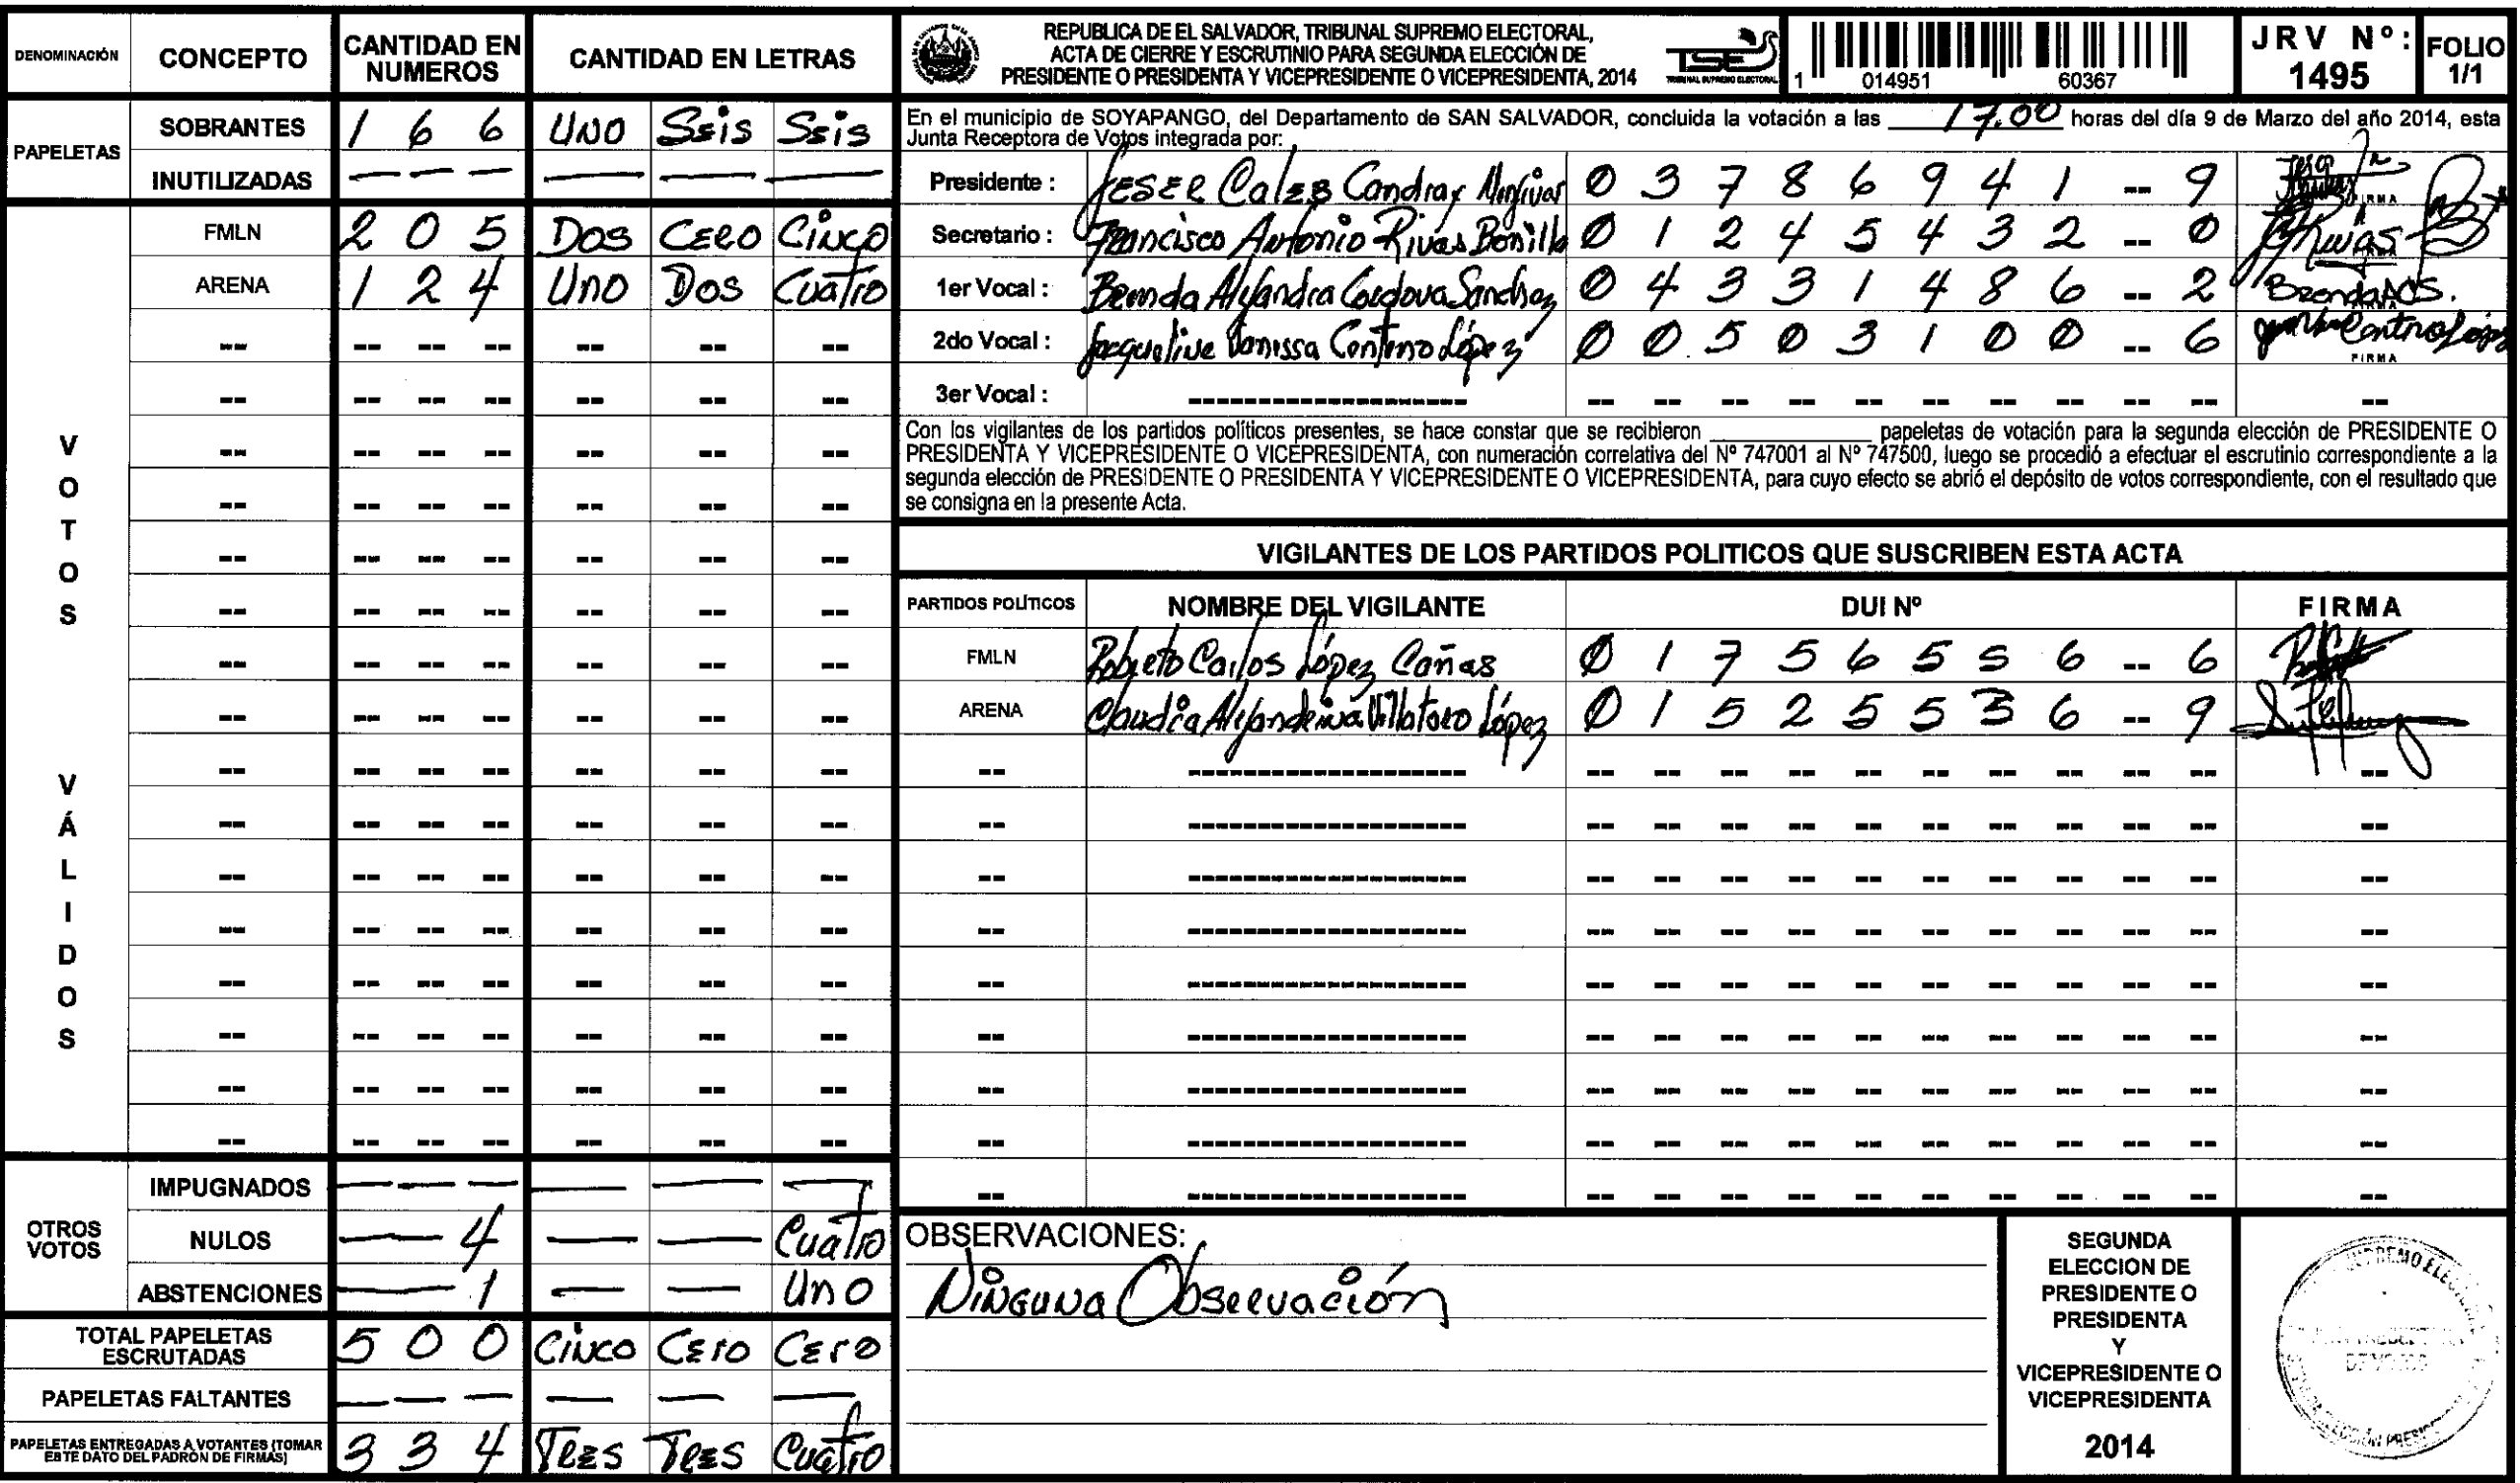 DENOMINACIÓN CONCEPTO CANTIDAD EN NUMEROS CANTIDAD EN LETRAS
PAPELETAS
SOBRANTES 1 6 6 UNO SEis SEis
INUTILIZADAS — — — — — —
VOTOS VÁLIDOS
FMLN 2 0 5 DOS CERO CiNCO
ARENA 1 2 4 Uno Dos Cuatro
OTROS VOTOS
IMPUGNADOS — — — — — —
NULOS — 4 — — Cuatro
ABSTENCIONES — 1 — — Uno
TOTAL PAPELETAS ESCRUTADAS 5 0 0 CiNCO CEro CEro
PAPELETAS FALTANTES — — — — — —
PAPELETAS ENTREGADAS A VOTANTES (TOMAR ESTE DATO DEL PADRÓN DE FIRMAS) 3 3 4 TRES TRES Cuatro
REPUBLICA DE EL SALVADOR, TRIBUNAL SUPREMO ELECTORAL,
ACTA DE CIERRE Y ESCRUTINIO PARA SEGUNDA ELECCIÓN DE
PRESIDENTE O PRESIDENTA Y VICEPRESIDENTE O VICEPRESIDENTA, 2014
TSE
TRIBUNAL SUPREMO ELECTORAL
1 014951 60367
JRV Nº: 1495
FOLIO 1/1
En el municipio de SOYAPANGO, del Departamento de SAN SALVADOR, concluida la votación a las 17.00 horas del día 9 de Marzo del año 2014, esta
Junta Receptora de Votos integrada por:
Presidente : JESER CalEB Candray Menjivar 0 3 7 8 6 9 4 1 -- 9 FIRMA
Secretario : Francisco Antonio Rivas Bonilla 0 1 2 4 5 4 3 2 -- 0 Rivas FIRMA
1er Vocal : Brenda Alejandra Cordova Sanchez 0 4 3 3 1 4 8 6 -- 2 BrendaACS. FIRMA
2do Vocal : Jacqueline Vanissa Centeno López 0 0 5 0 3 1 0 0 -- 6 FIRMA
3er Vocal : -- -- -- -- -- -- -- -- -- -- --
Con los vigilantes de los partidos políticos presentes, se hace constar que se recibieron ______ papeletas de votación para la segunda elección de PRESIDENTE O
PRESIDENTA Y VICEPRESIDENTE O VICEPRESIDENTA, con numeración correlativa del Nº 747001 al Nº 747500, luego se procedió a efectuar el escrutinio correspondiente a la
segunda elección de PRESIDENTE O PRESIDENTA Y VICEPRESIDENTE O VICEPRESIDENTA, para cuyo efecto se abrió el depósito de votos correspondiente, con el resultado que
se consigna en la presente Acta.
VIGILANTES DE LOS PARTIDOS POLITICOS QUE SUSCRIBEN ESTA ACTA
PARTIDOS POLÍTICOS NOMBRE DEL VIGILANTE DUI Nº FIRMA
FMLN Roberto Carlos López Cañas 0 1 7 5 6 5 5 6 -- 6
ARENA Claudia Villatoro López 0 1 5 2 5 5 3 6 -- 9
OBSERVACIONES:
NiNGUNA Observación
SEGUNDA
ELECCION DE
PRESIDENTE O
PRESIDENTA
Y
VICEPRESIDENTE O
VICEPRESIDENTA
2014